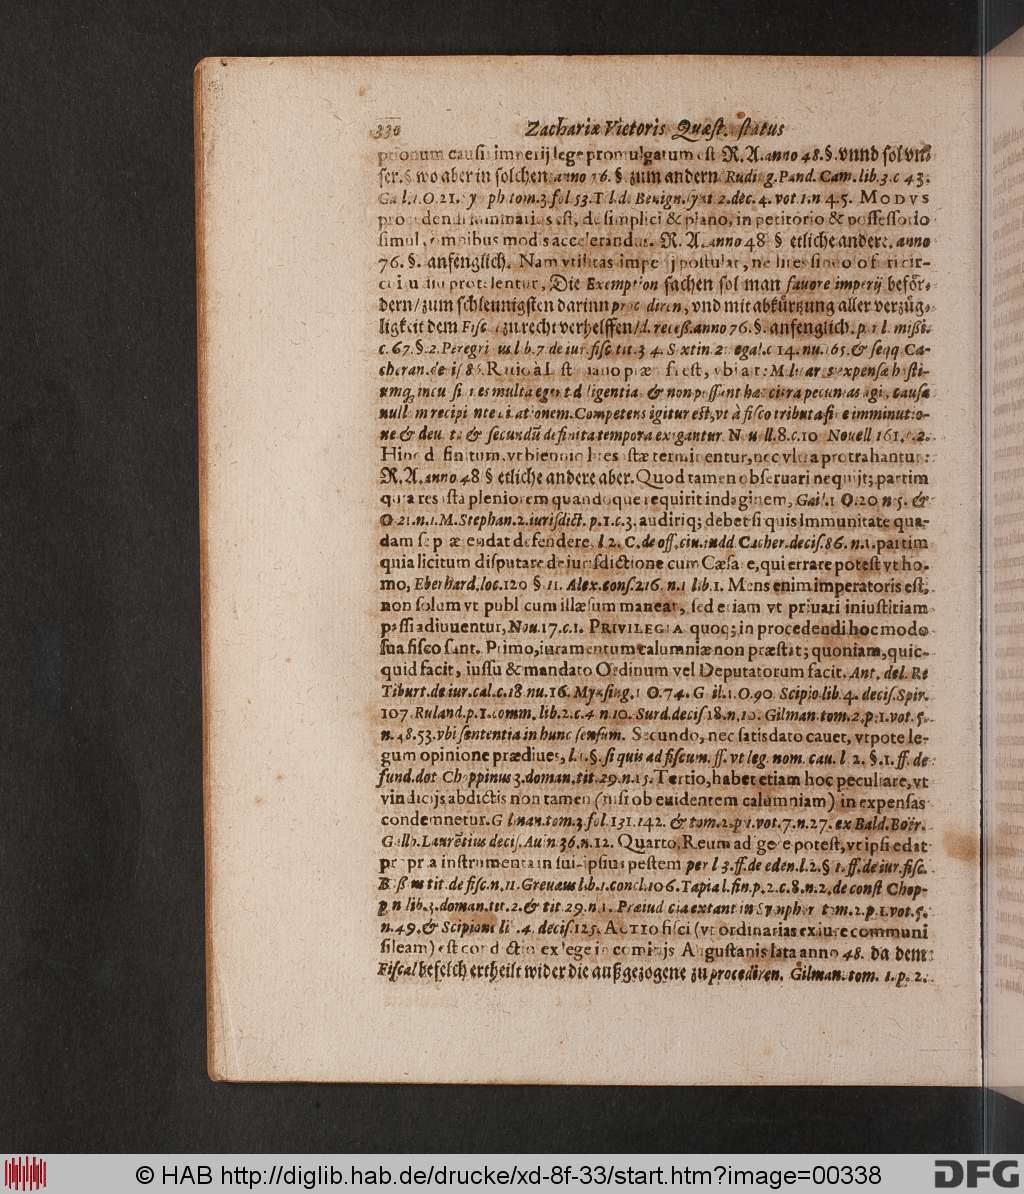 330 Zachariæ Vietoris Quæst. status
causis imperij lege promulgatum est R. A. anno 48. §. vnnd sol vn-
ser. § wo aber in solchen anno 76. § zum andern Ruding. Pand. Cam. lib. 3. c 43.
O. 21. tom. 3. fol 53. 2. dec. 4. vot 1. n 45. MODVS
est, de simplici & plano, in petitorio & possessorio
simul, omnibus modis accelerandus. R. A. anno 48 § etliche andere. anno
76. §. anfenglich. Nam vtilitas imperij postulat, ne lites
Die Exemption sachen sol man fauore imperij beför-
dern/ zum schleunigsten darinn procediren, vnd mit abkürtzung aller verzüg-
ligkeit dem zu recht verhelffen/ d. receß. anno 76. §. anfenglich.
c. 67. §. 2. l b. 7 de iur. fisc. tit. 3 4. 14. nu. 165. & seqq Ca-
est, vbi ait:
multa egent diligentia, & non possunt hæc citra pecunias agi, causa
nullam Competens igitur est, vt à fisco tributa sine imminutio-
ne & secundū definita tempora exigantur. Nouell. 8. c. 10 Nouell 161. c. 2.
Hinc definitum, vt biennio lites istæ terminentur, nec vltra protrahantur:
R. A. anno 48 § etliche andere aber. Quod tamen obseruari nequit; partim
quia res ista pleniorem quandoque requirit indaginem, Gail. 1 O. 20 n 5. &
O 21. n. 1. M. Stephan. 2. iurisdict. p. 1. c. 3. audiriq; debet si quis Immunitate qua-
dam se prætendat defendere. l 2. C. de off. ciu. iudd. Cacher. decis. 86. n. 1. partim
quia licitum disputare de iurisdictione cum Cæsare, qui errare potest vt ho-
mo, Eberhard. loc. 120 §. 11. Alex. cons. 216. n. 1 lib. 1. Mens enim imperatoris est,
non solum vt publicum illæsum maneat, sed etiam vt priuati iniustitiam
passi adiuuentur, Nou. 17. c. 1. PRIVILEGIA quoq; in procedendi hoc modo
sua fisco sunt. Primo, iuramentum calumniæ non præstat; quoniam, quic-
quid facit, iussu & mandato Ordinum vel Deputatorum facit. Ant. del. Re
Tiburt. de iur. cal. c. 18. nu. 16. Mynsing. 1 O. 74. Gail. 1. O. 90. Scipio lib. 4. decis. Spir.
107. Ruland. p. 1. comm. lib. 2. c. 4 n. 10. Surd. decis 18. n. 10. Gilman. tom. 2. p. 1. vot. 5.
n. 48. 53. vbi sententia in hunc sensum. Secundo, nec satisdato cauet, vtpote le-
gum opinione prædiues, l. 1. §. si quis ad fiscum. ff. vt leg. nom. cau. l 2. §. 1. ff. de
fund. dot. Choppinus 3. doman. tit. 29. n. 15. Tertio, habet etiam hoc peculiare, vt
vindicijs abdictis non tamen (nisi ob euidentem calumniam) in expensas
condemnetur. Gilman. tom. 3. fol 131. 142. & tom. 2. p. 1. vot. 7. n. 27. ex Bald. Boër.
Gallo. Laurētius decis. Auin 36. n. 12. Quarto, Reum adigere potest, vt ipsi edat
propria instrumenta in sui-ipsius pestem per l 3. ff. de eden. l. 2. § 1. ff. de iur. fisc.
tit. de fisc. n. 11. Greuæus lib. 1. concl. 106. Tapia l. fin. p. 2. c. 8. n. 2. de const Chop-
pin lib. 3. doman. tit. 2. & tit 29. n. 1. Præiudicia extant in Symphor tom. 2. p. 1. vot. 5.
n. 49. & Scipioni lib. 4. decis. 125. ACTIO fisci (vt ordinarias ex iure communi
sileam) est condictio ex lege in comitijs Augustanis lata anno 48. da dem
Fiscal befelch ertheilt wider die außgezogene zu procediren. Gilman. tom. 1. p. 2.
© HAB http://diglib.hab.de/drucke/xd-8f-33/start.htm?image=00338
DFG